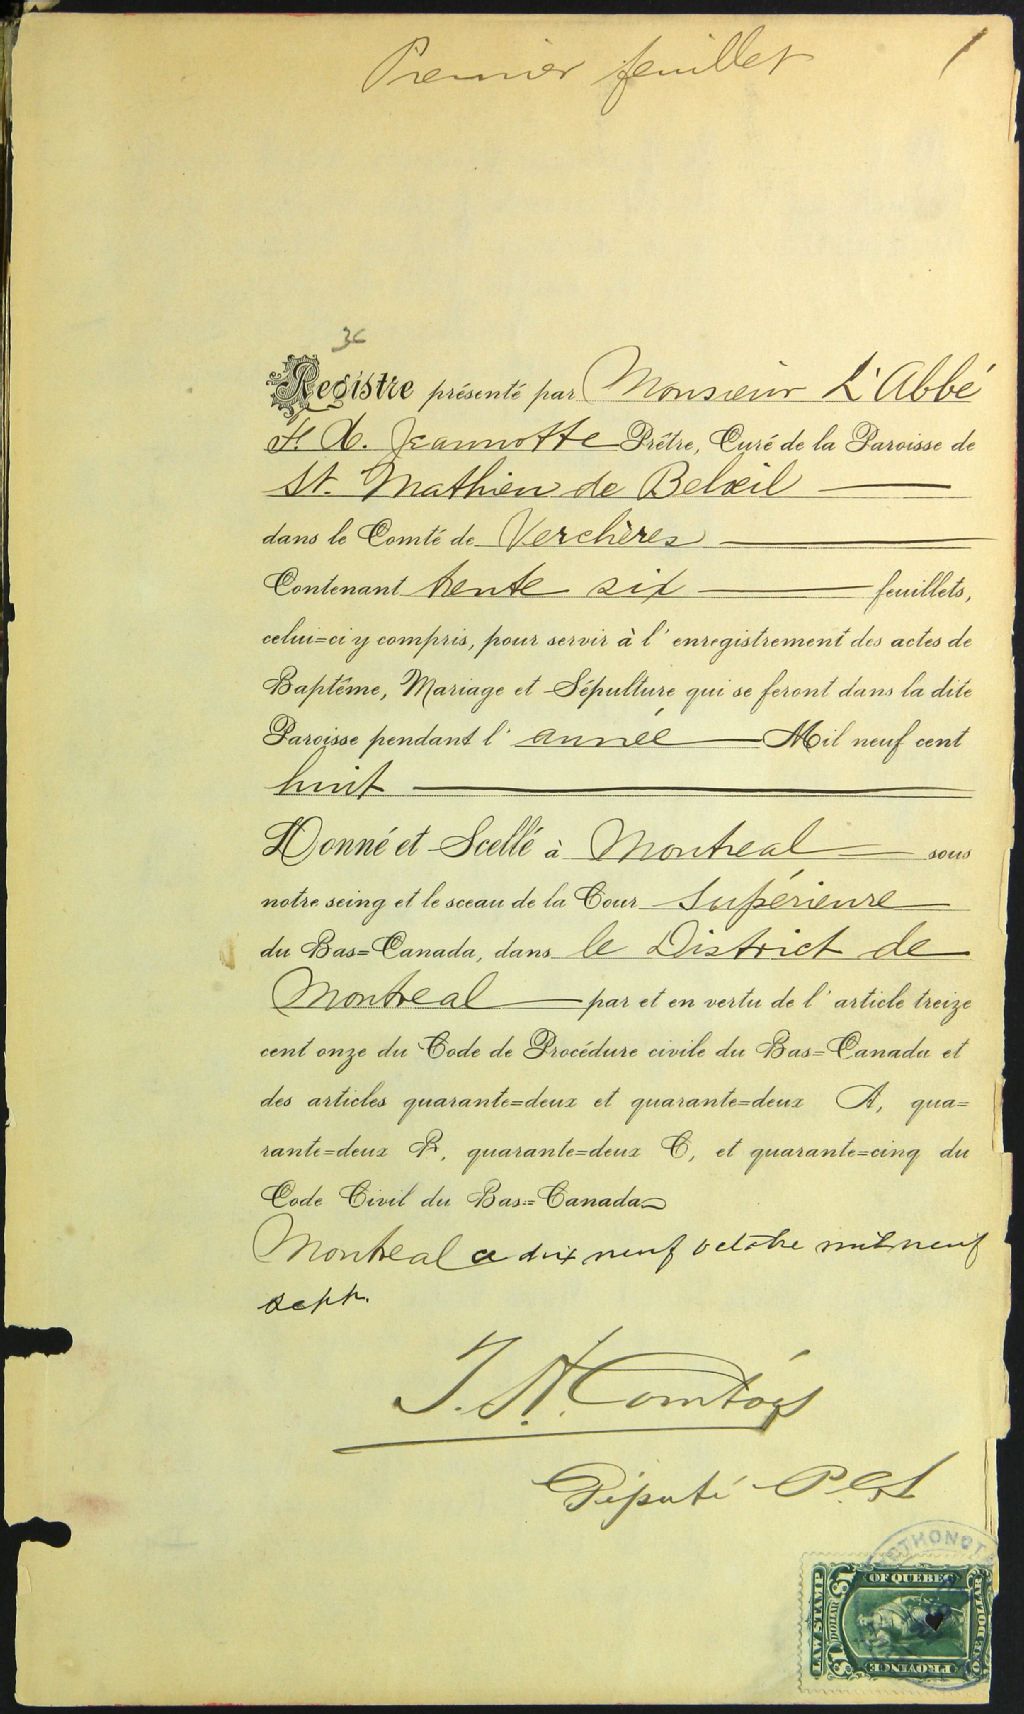 Premier feuillet 1
36
Registre présenté par Monsieur L'Abbé
F. X. Jeannotte Prêtre, Curé de la Paroisse de
St. Mathieu de Belœil
dans le Comté de Verchères
Contenant trente six feuillets,
celui=ci y compris, pour servir à l'enregistrement des actes de
Baptême, Mariage et Sépulture qui se feront dans la dite
Paroisse pendant l'année Mil neuf cent
huit
Donné et Scellé à Montreal sous
notre seing et le sceau de la Cour Supérieure
du Bas=Canada, dans le District de
Montreal par et en vertu de l'article treize
cent onze du Code de Procédure civile du Bas=Canada et
des articles quarante=deux et quarante=deux A, qua=
rante=deux B, quarante=deux C, et quarante=cinq du
Code Civil du Bas=Canada
Montreal ce dix neuf octobre mil neuf
sept.
J. A. Comtois
Député P.C.S.
LAW STAMP
$1 DOLLAR $1
OF QUEBEC
PROVINCE
ONE DOLLAR